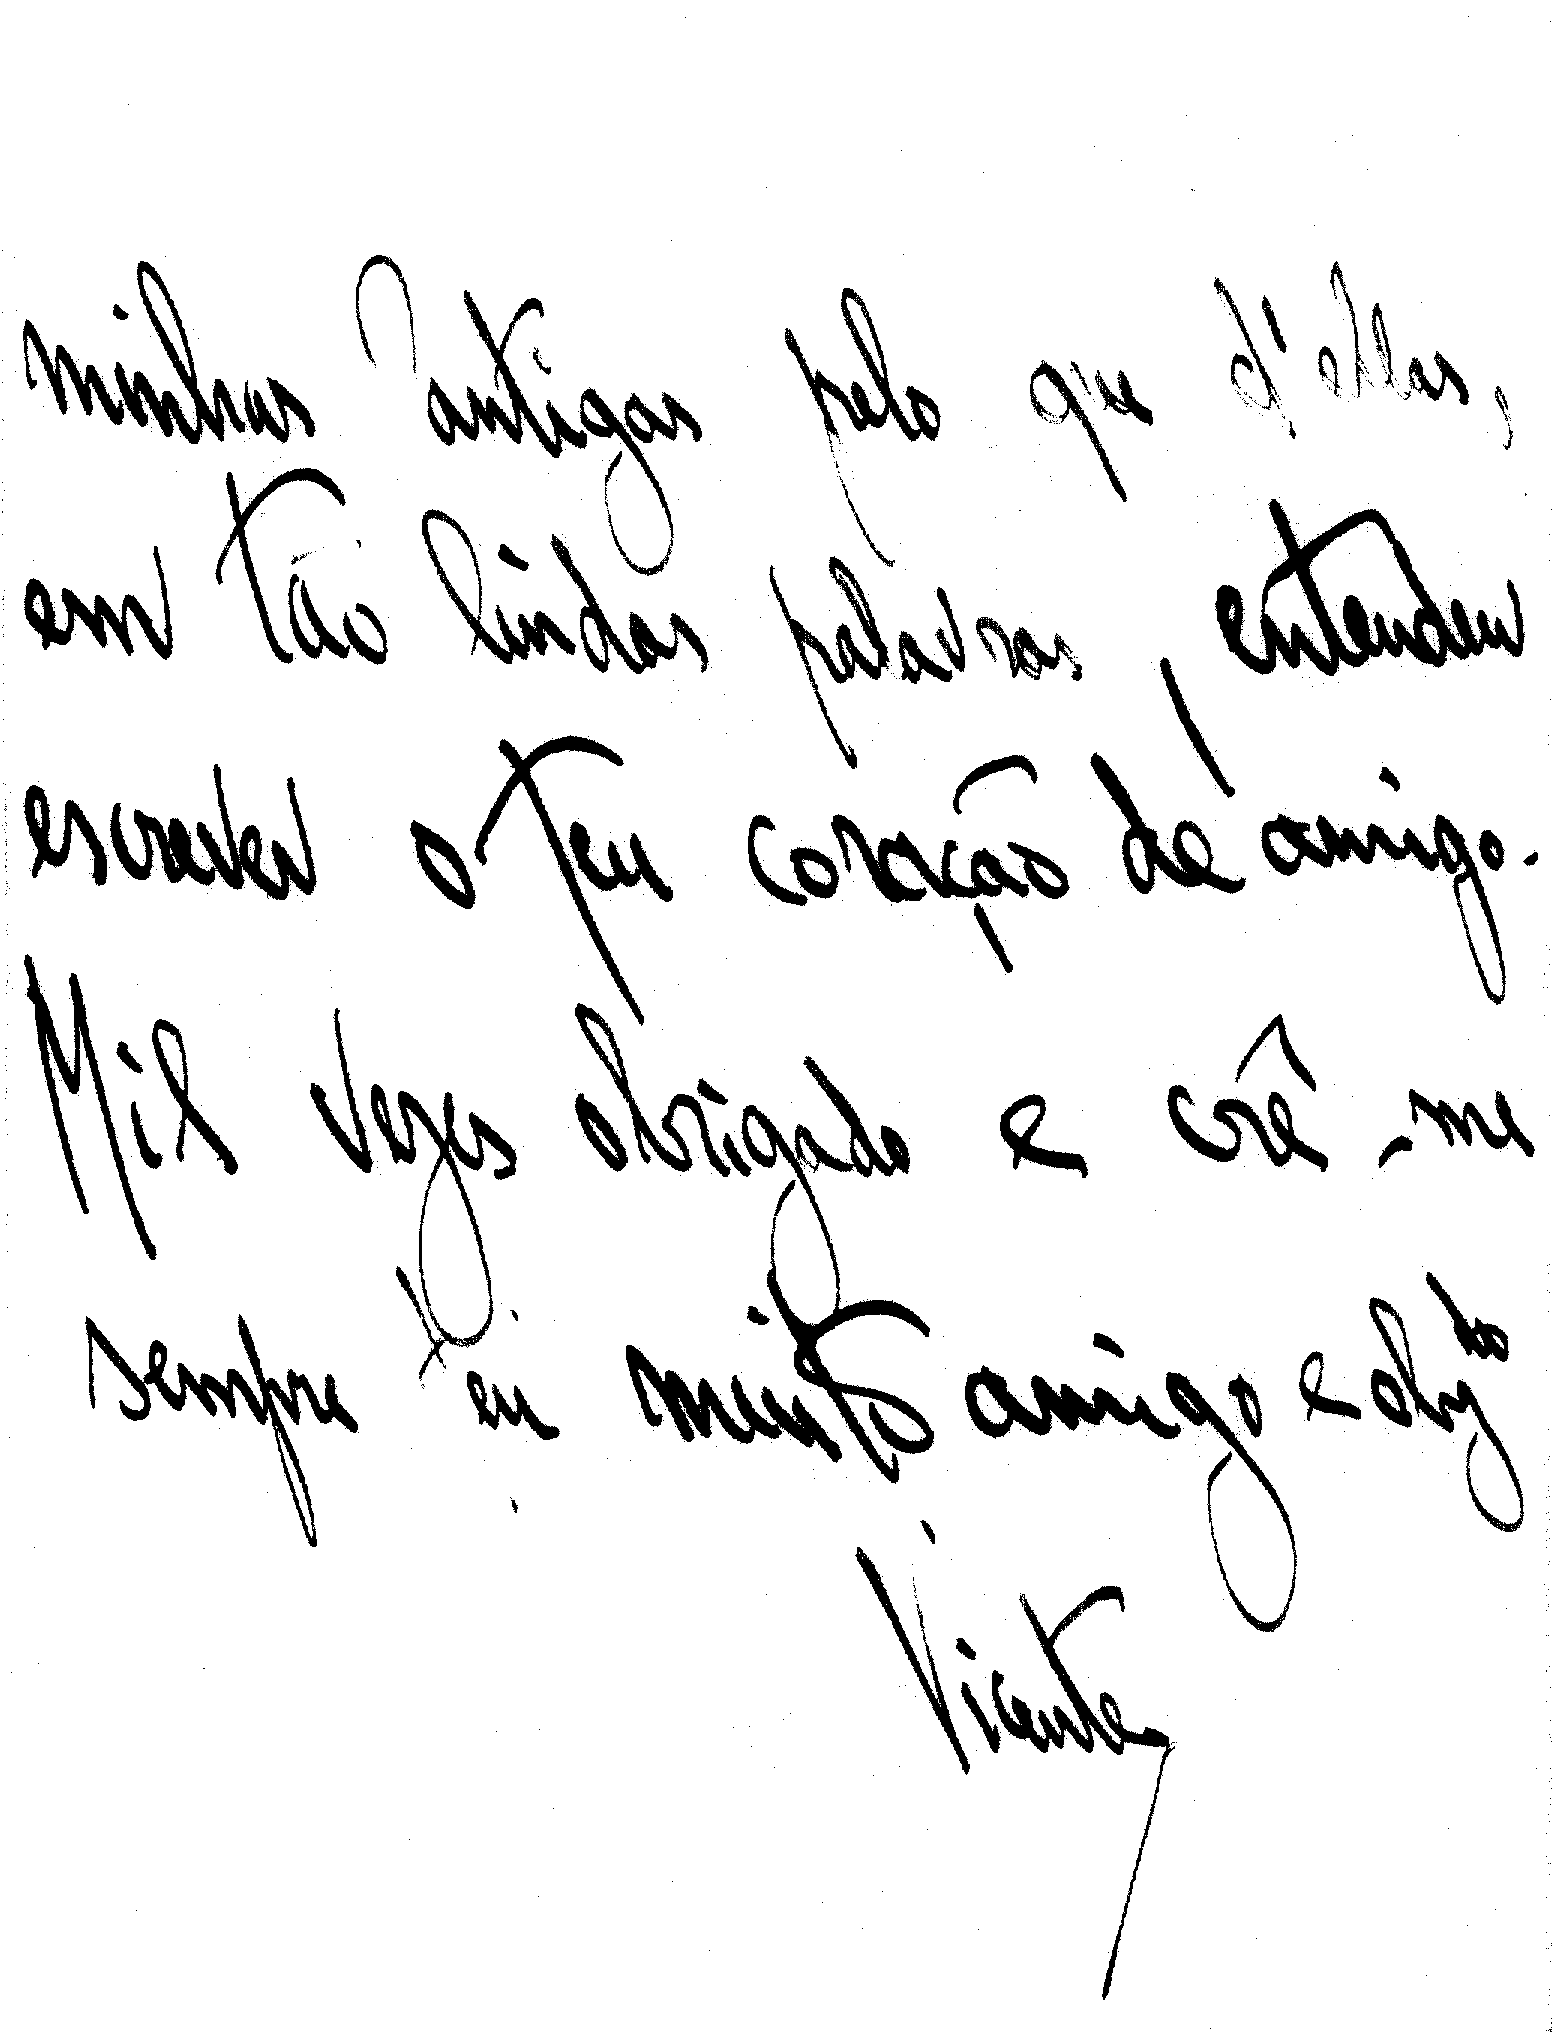 minhas antigas pelo que d'ellas,
em tão lindas palavras, entendeu
escrever o teu coração de amigo.
Mil vezes obrigado e crê-me
sempre teu muito amigo e obgdo
Vicente